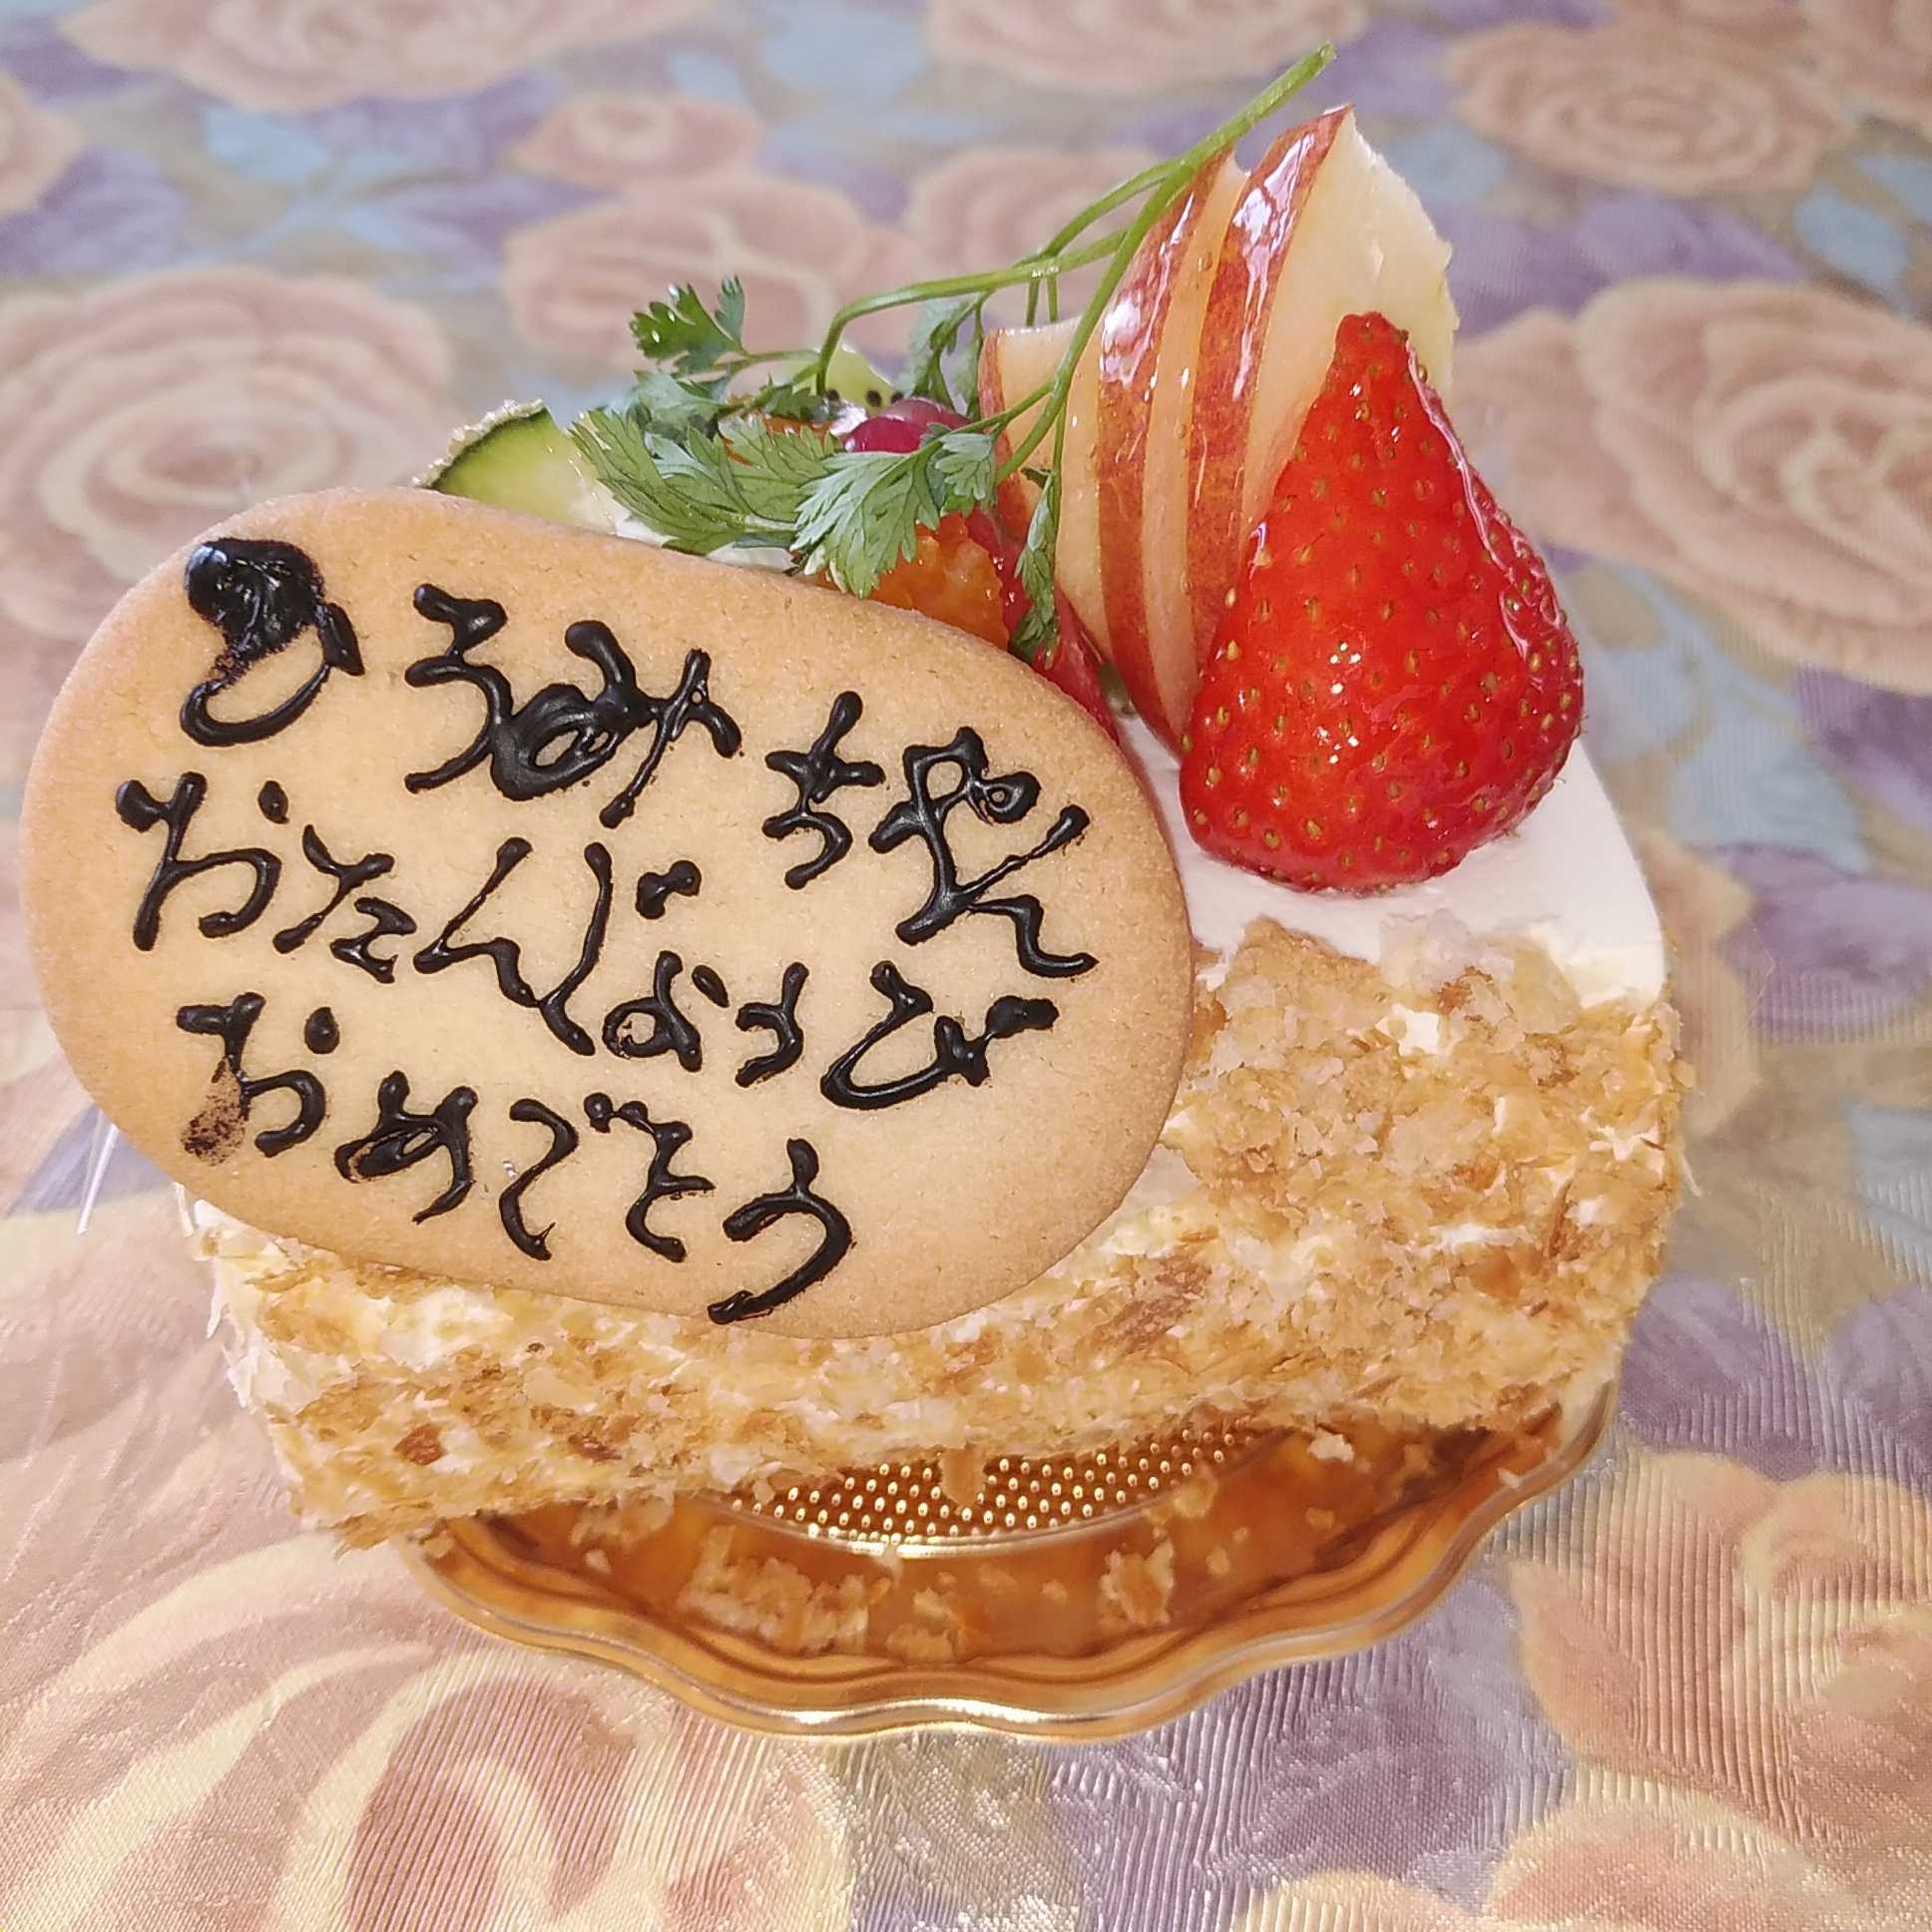 ひろみちゃん
おたんじょうび
おめでとう